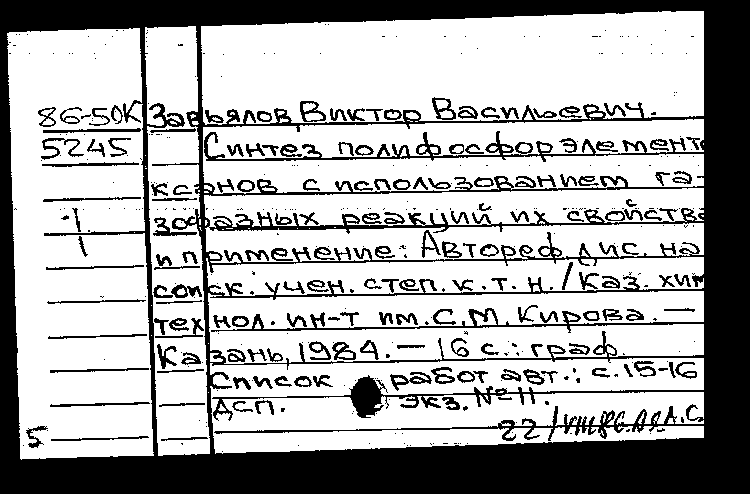 86-50К Завьялов, Виктор Васильевич.
5245 Синтез полифосфорэлементо
ксанов с использованием га-
зофазных реакций, их свойства
и применение: Автореф. дис. на
соиск. учен. степ. к.т.н. / Каз. хим
технол. ин-т им. С.М. Кирова. —
Казань, 1984. — 16 с.: граф.
Список работ авт.: с. 15-16
ДСП. экз. № 11.
5 22/VIII86. А.С.